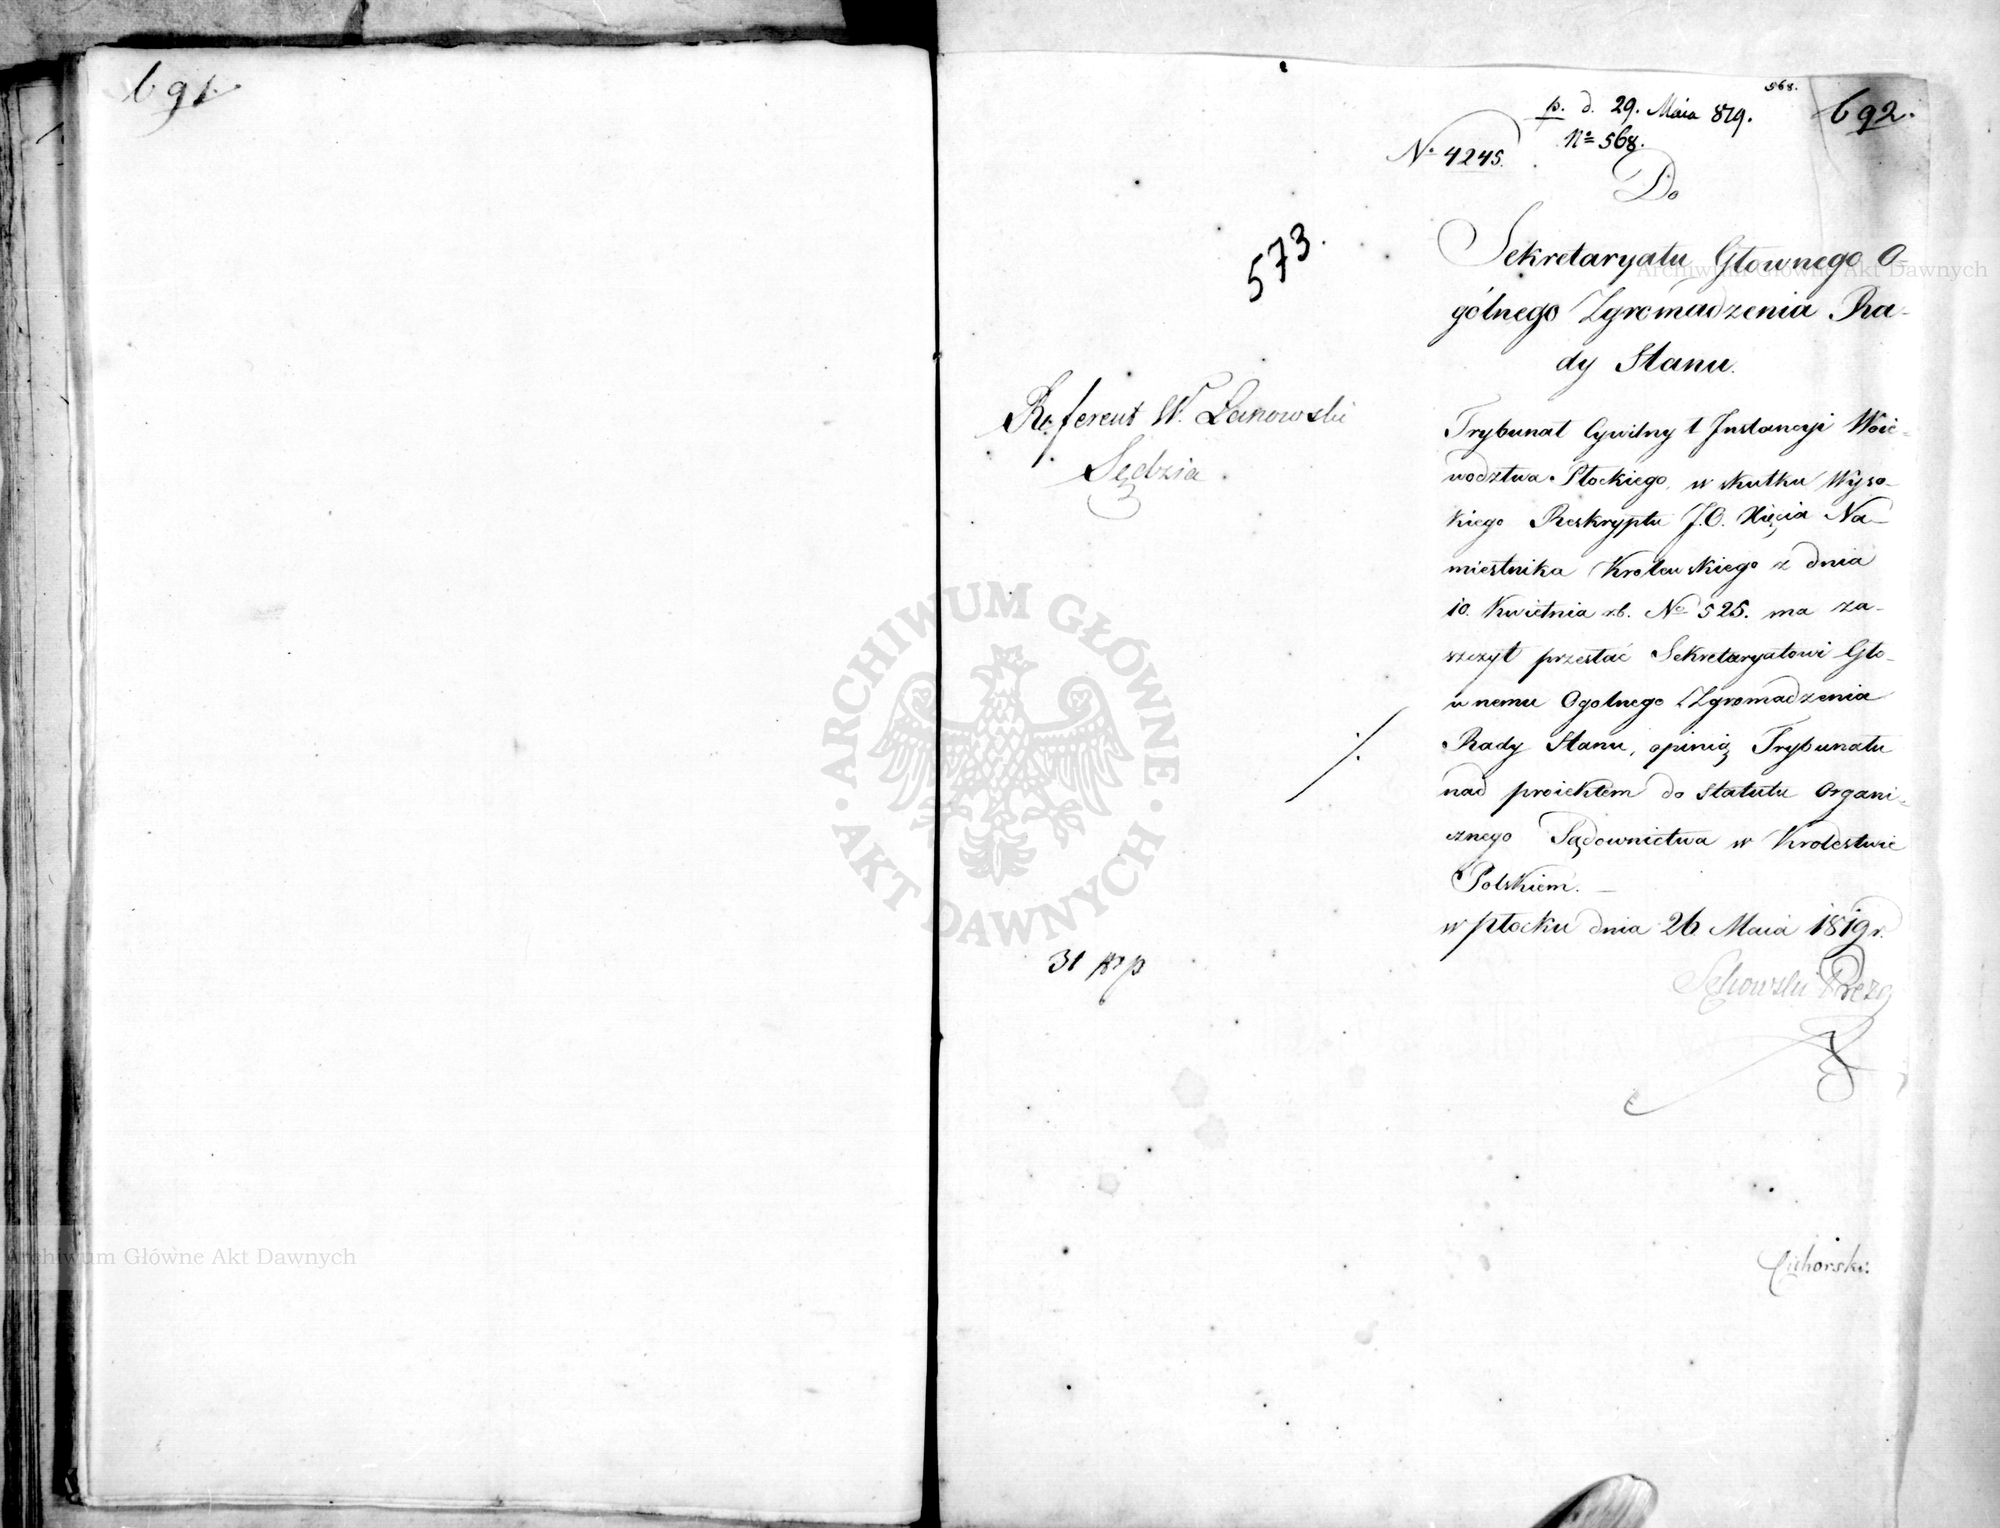 691.
568.
692.
p. d. 29. Maia 819.
No 568.
No 4245.
Do
573.
Sekretaryatu Głownego O-
gólnego Zgromadzenia Ra-
dy Stanu.
Referent W. Łanowski
Sędzia
Trybunał Cywilny 1 Instancyi Woie-
wodztwa Płockiego, w skutku Wyso-
kiego Reskryptu J.O. Xięcia Na-
miestnika Krolewskiego z dnia
10. Kwietnia r.b. No 525. ma za-
szczyt przesłać Sekretaryatowi Gło-
wnemu Ogolnego Zgromadzenia
Rady Stanu, opinią Trybunału
nad proiektem do Statutu Organi-
cznego Sądownictwa w Krolestwie
Polskiem.
w Płocku dnia 26 Maia 1819 r.
31
Prezes
Cichorski
ARCHIWUM GŁÓWNE
AKT DAWNYCH
Archiwum Główne Akt Dawnych
Archiwum Główne Akt Dawnych